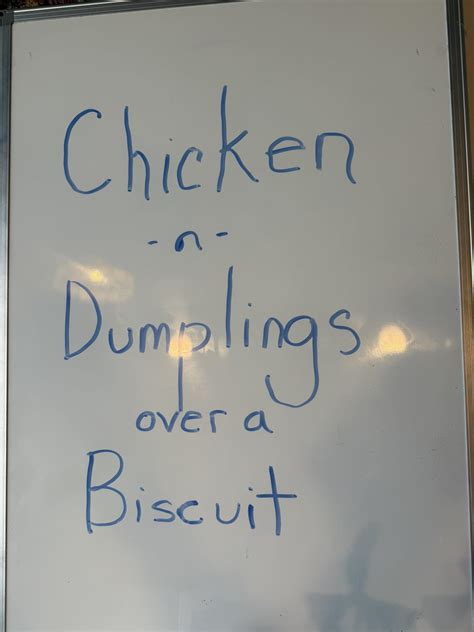 Chicken
-n-
Dumplings
over a
Biscuit